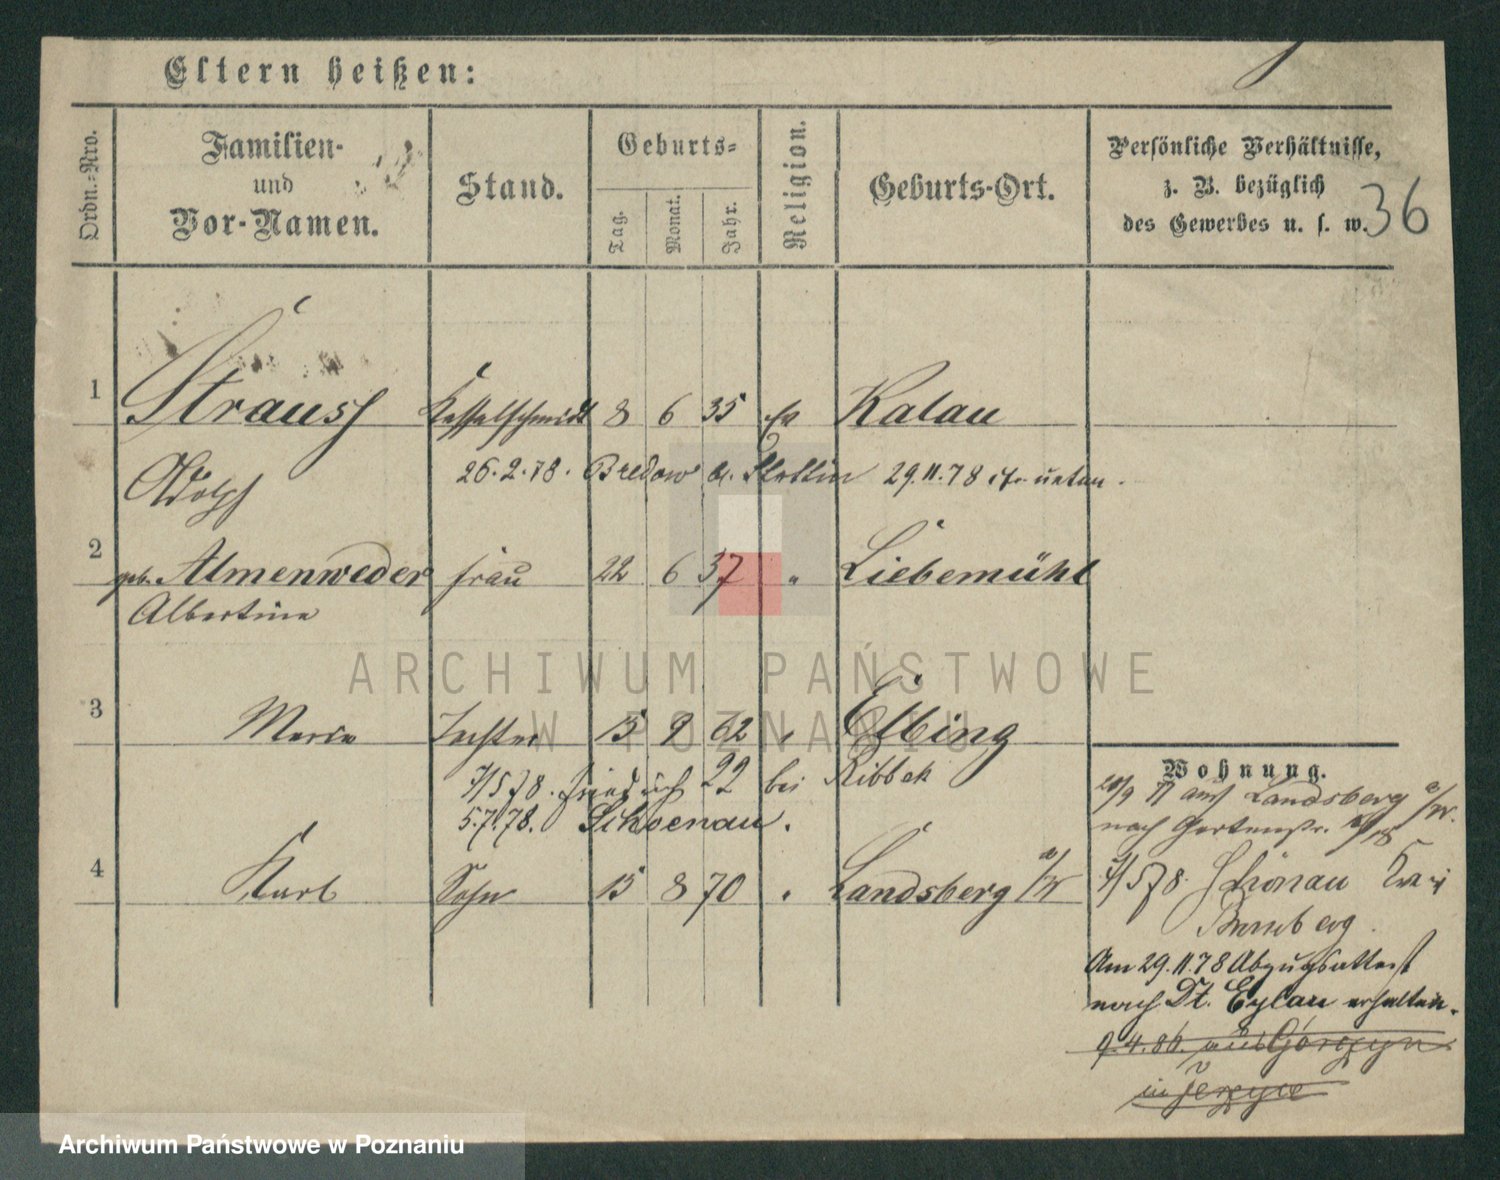 Eltern heißen:
Ordn.-Nro.
Familien-
und
Vor-Namen.
Stand.
Geburts-
Tag.
Monat.
Jahr.
Religion.
Geburts-Ort.
Persönliche Verhältnisse,
z. B. bezüglich
des Gewerbes u. s. w.
36
1 Strauss Kesselschmidt 8 6 35 ev Kalau
Adolph 26.2.78. Bredow b. Stettin 29.11.78 unten.
2 geb. Almenweder Frau 22 6 37 " Liebemühl
Albertine
3 Marie Tochter 15 9 62 " Elbing
Wohnung.
7/5 78. Friedrich 22 bei Ribbek
5.7.78. Schoenau.
4 Karl Sohn 15 8 70 " Landsberg a/W
20/9 77 aus Landsberg a/W.
nach Gartenstr.
7/5 78. Schönau Kreis
Bromberg.
Am 29.11.78 Abzugsattest
nach Dt. Eylau erhalten.
9.4.86. aus Gorczyn
in Jerzyce
ARCHIWUM PAŃSTWOWE
W POZNANIU
Archiwum Państwowe w Poznaniu